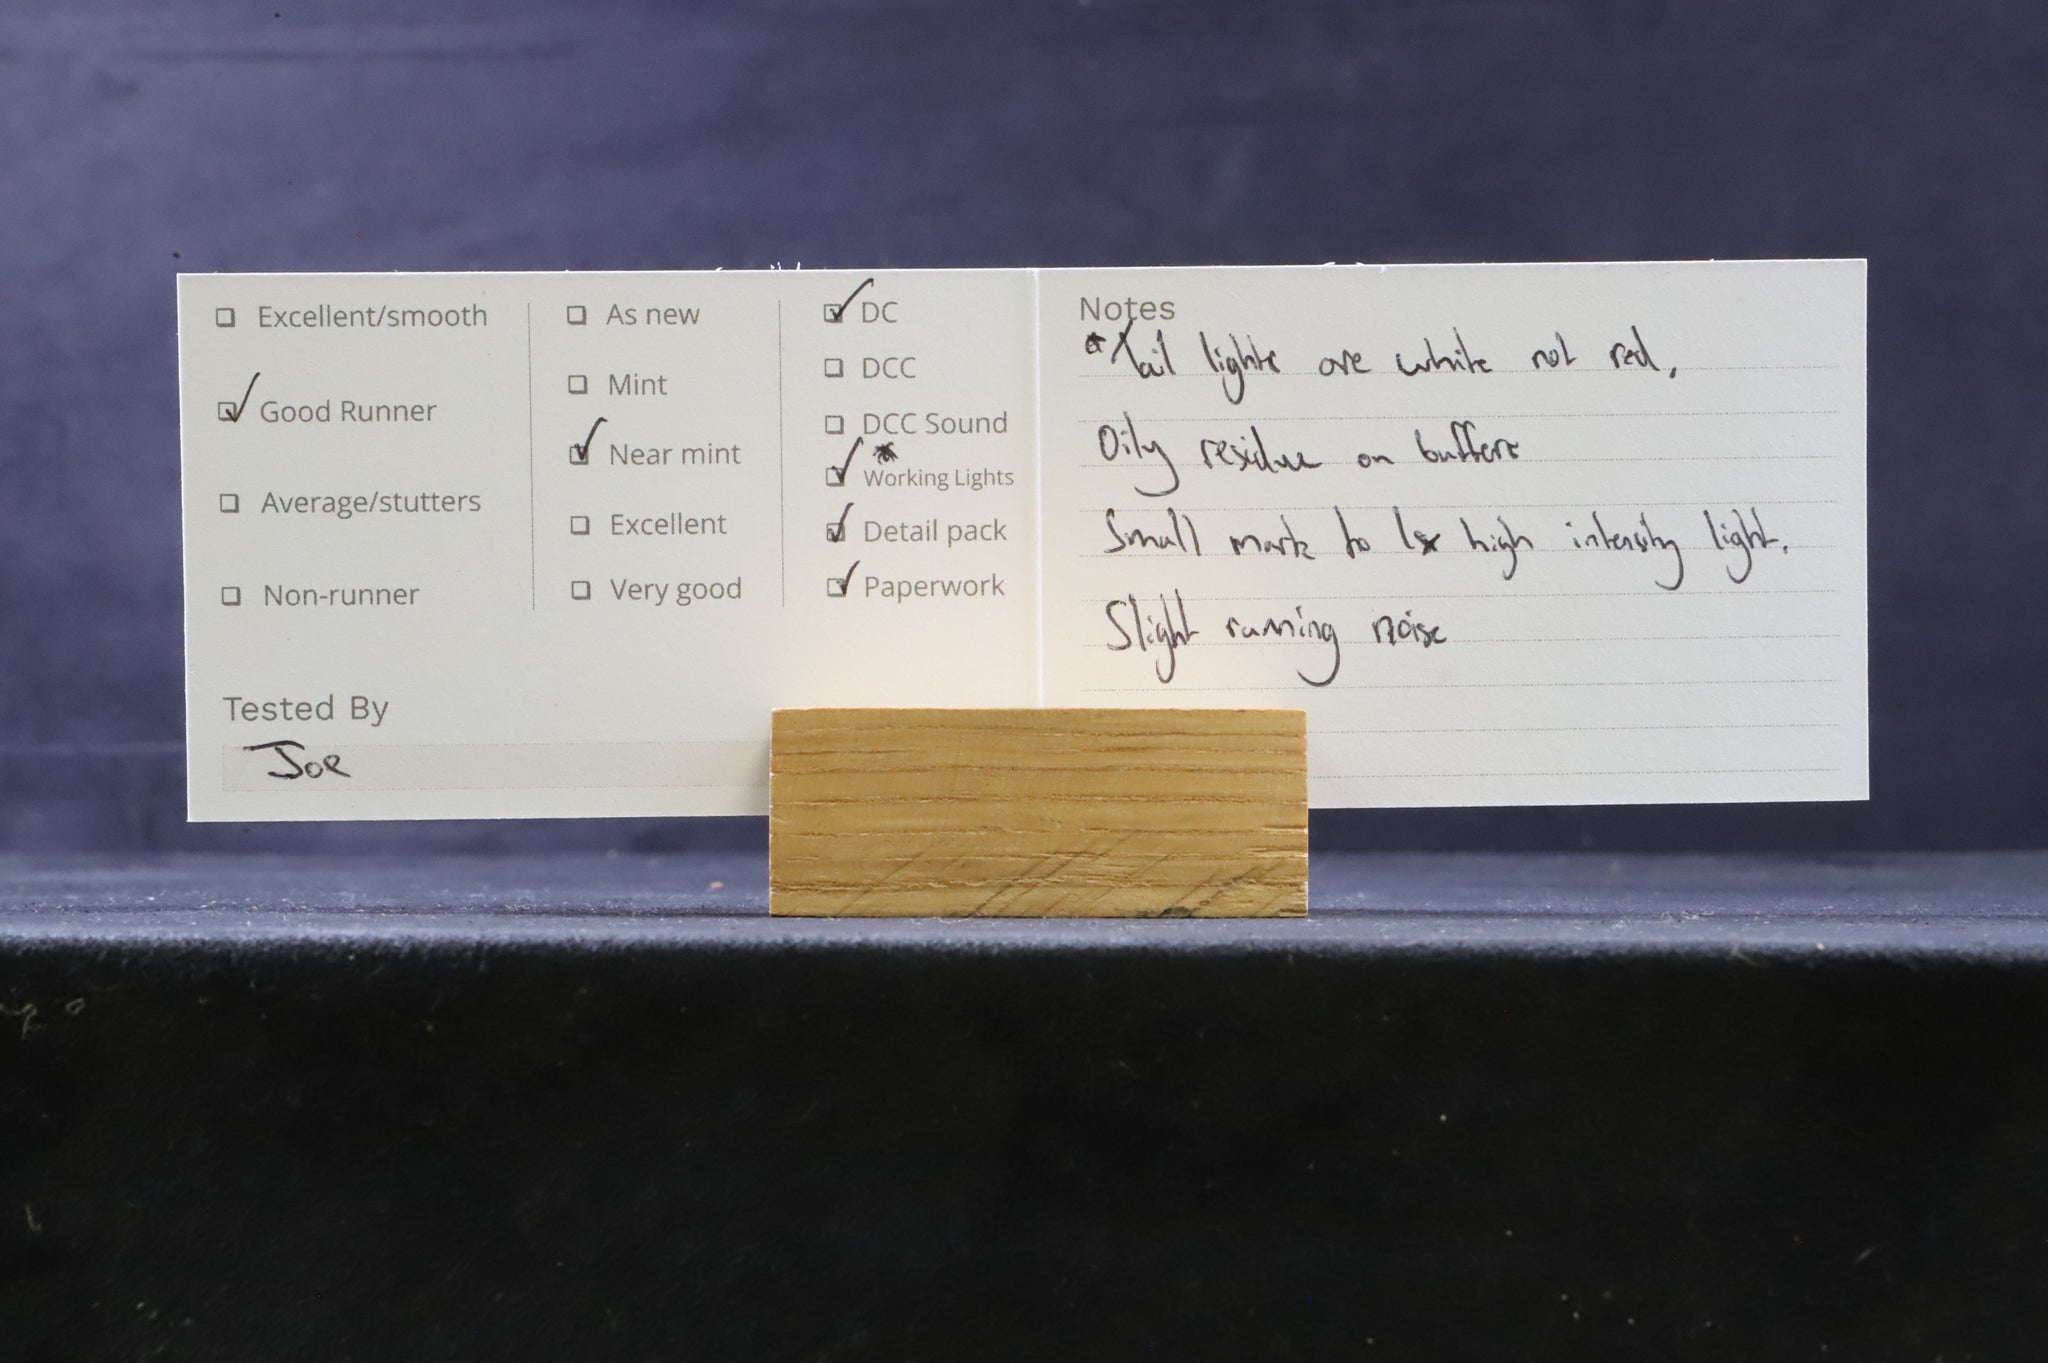 Excellent/smooth
Good Runner
Average/stutters
Non-runner
As new
Mint
Near mint
Excellent
Very good
DC
DCC
DCC Sound
*
Working Lights
Detail pack
Paperwork
Tested By
Joe
Notes
*Tail lights are white not red.
Oily residue on buffers
Small mark to 1x high intensity light.
Slight running noise